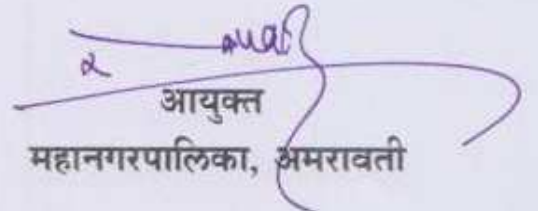 आयुक्त
महानगरपालिका, अमरावती